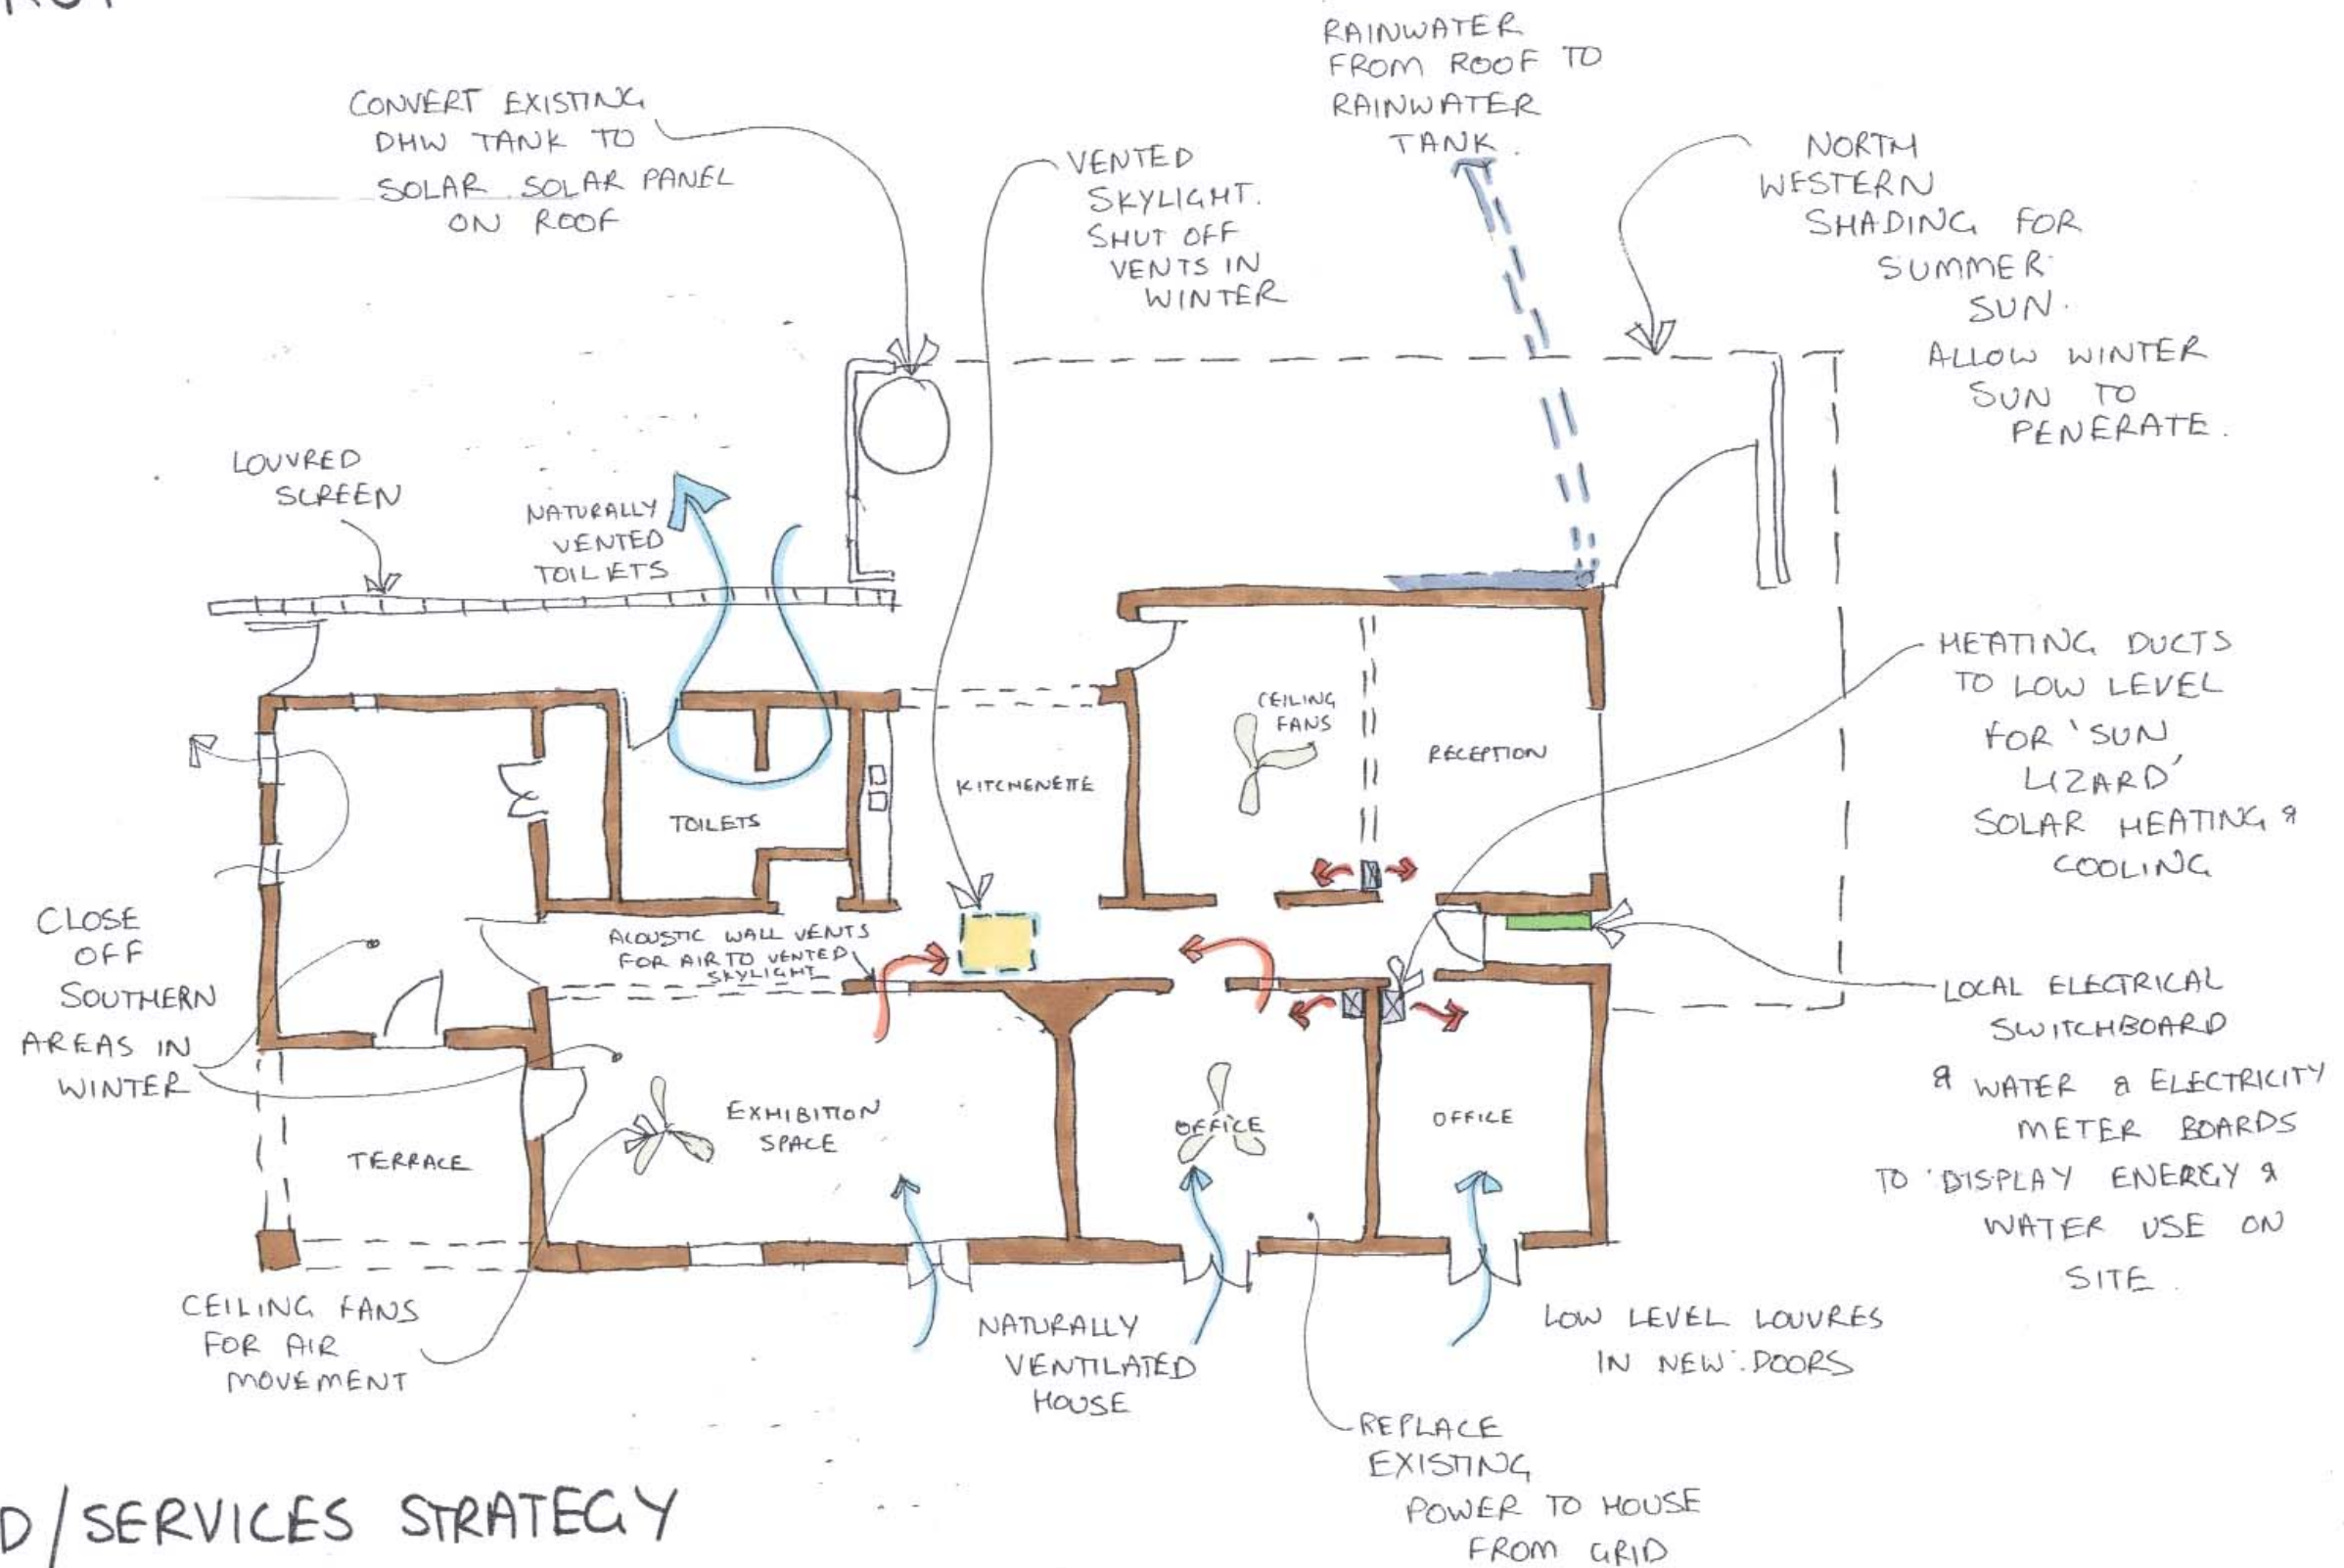 CONVERT EXISTING
DHW TANK TO
SOLAR. SOLAR PANEL
ON ROOF
VENTED
SKYLIGHT.
SHUT OFF
VENTS IN
WINTER
RAINWATER
FROM ROOF TO
RAINWATER
TANK.
NORTH
WESTERN
SHADING FOR
SUMMER
SUN.
ALLOW WINTER
SUN TO
PENERATE.
LOUVRED
SCREEN
NATURALLY
VENTED
TOILETS
CEILING
FANS
RECEPTION
KITCHENETTE
TOILETS
HEATING DUCTS
TO LOW LEVEL
FOR 'SUN
LIZARD'
SOLAR HEATING &
COOLING
CLOSE
OFF
SOUTHERN
AREAS IN
WINTER
ACOUSTIC WALL VENTS
FOR AIR TO VENTED
SKYLIGHT
LOCAL ELECTRICAL
SWITCHBOARD
& WATER & ELECTRICITY
METER BOARDS
TO DISPLAY ENERGY &
WATER USE ON
SITE.
EXHIBITION
SPACE
OFFICE
OFFICE
TERRACE
CEILING FANS
FOR AIR
MOVEMENT
NATURALLY
VENTILATED
HOUSE
LOW LEVEL LOUVRES
IN NEW DOORS
REPLACE
EXISTING
POWER TO HOUSE
FROM GRID
D/SERVICES STRATEGY